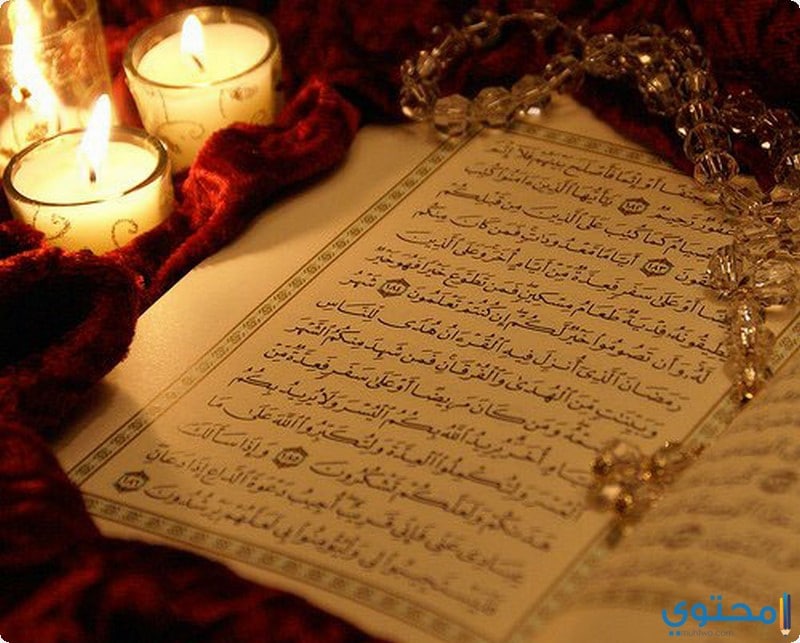 أَوْ إِثْمًا فَأَصْلَحَ بَيْنَهُمْ فَلَآ إِثْمَ
غَفُورٌ رَّحِيمٌ ١٨٢ يَٰٓأَيُّهَا ٱلَّذِينَ ءَامَنُوا۟ كُتِبَ
ٱلصِّيَامُ كَمَا كُتِبَ عَلَى ٱلَّذِينَ مِن قَبْلِكُمْ
١٨٣ أَيَّامًا مَّعْدُودَٰتٍ فَمَن كَانَ مِنكُم
أَوْ عَلَىٰ سَفَرٍ فَعِدَّةٌ مِّنْ أَيَّامٍ أُخَرَ وَعَلَى ٱلَّذِينَ
يُطِيقُونَهُۥ فِدْيَةٌ طَعَامُ مِسْكِينٍ فَمَن تَطَوَّعَ خَيْرًا فَهُوَ خَيْرٌ
لَّهُۥ وَأَن تَصُومُوا۟ خَيْرٌ لَّكُمْ إِن كُنتُمْ تَعْلَمُونَ ١٨٤ شَهْرُ
رَمَضَانَ ٱلَّذِىٓ أُنزِلَ فِيهِ ٱلْقُرْءَانُ هُدًى لِّلنَّاسِ
وَبَيِّنَٰتٍ مِّنَ ٱلْهُدَىٰ وَٱلْفُرْقَانِ فَمَن شَهِدَ مِنكُمُ ٱلشَّهْرَ
وَمَن كَانَ مَرِيضًا أَوْ عَلَىٰ سَفَرٍ فَعِدَّةٌ مِّنْ
أُخَرَ يُرِيدُ ٱللَّهُ بِكُمُ ٱلْيُسْرَ وَلَا يُرِيدُ بِكُمُ
ٱلْعُسْرَ وَلِتُكْمِلُوا۟ ٱلْعِدَّةَ وَلِتُكَبِّرُوا۟ ٱللَّهَ عَلَىٰ مَا
هَدَىٰكُمْ وَلَعَلَّكُمْ تَشْكُرُونَ ١٨٥ وَإِذَا سَأَلَكَ
عِبَادِى عَنِّى فَإِنِّى قَرِيبٌ أُجِيبُ دَعْوَةَ ٱلدَّاعِ إِذَا دَعَانِ
فَلْيَسْتَجِيبُوا۟ لِى وَلْيُؤْمِنُوا۟ بِى لَعَلَّهُمْ يَرْشُدُونَ ١٨٦
محتوى
muhtwa.com